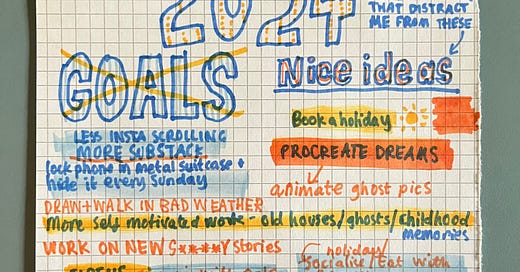 2024
THAT DISTRACT
ME FROM THESE
GOALS
Nice ideas
Book a holiday
LESS INSTA SCROLLING
MORE SUBSTACK
lock phone in metal suitcase +
hide it every Sunday
PROCREATE DREAMS
animate ghost pics
DRAW + WALK IN BAD WEATHER
More self motivated work - old houses/ghosts/childhood
memories
WORK ON NEW S****Y Stories
holiday
Socialise/Eat with